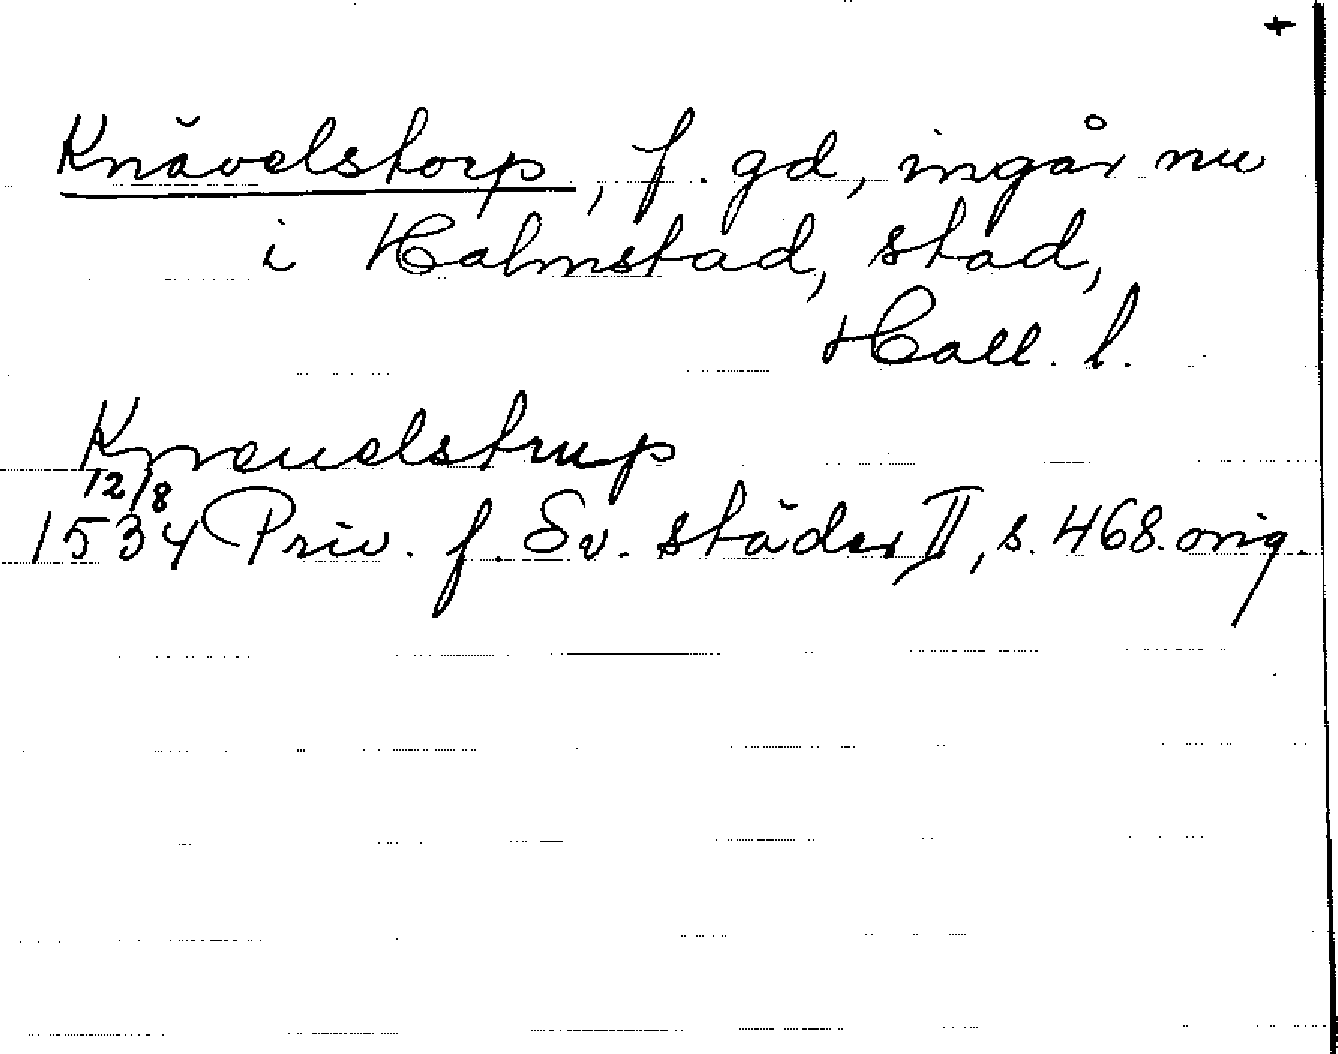 +
Knävelstorp, f. gd, ingår nu
i Halmstad, stad,
Hall. l.
Knreuelstrup
12/8
1534 Priv. f. Sv. städer II, s. 468. orig.